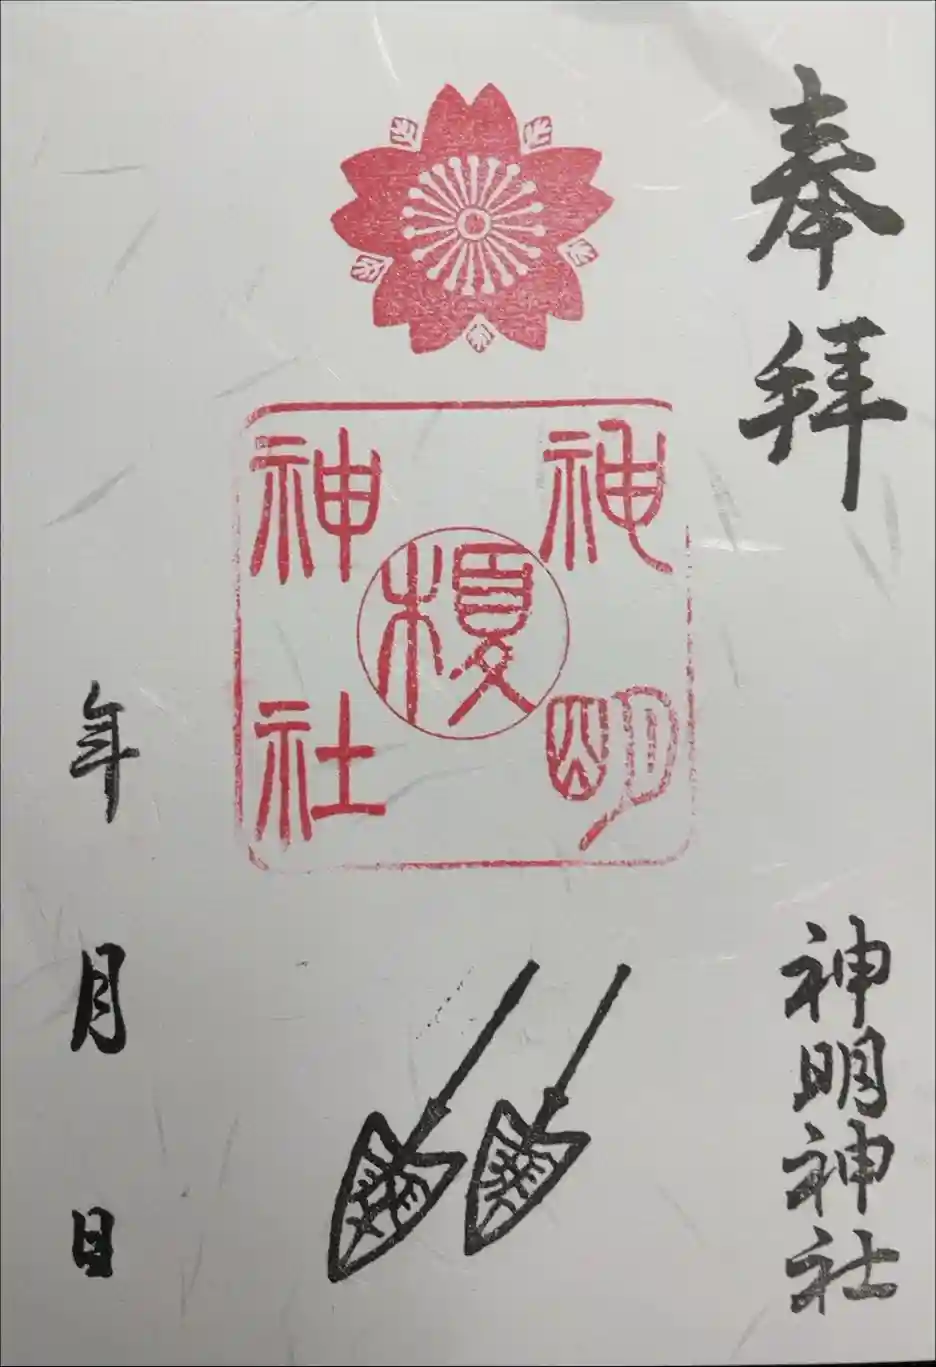 奉拝
神明神社
神明
榎
神社
年 月 日